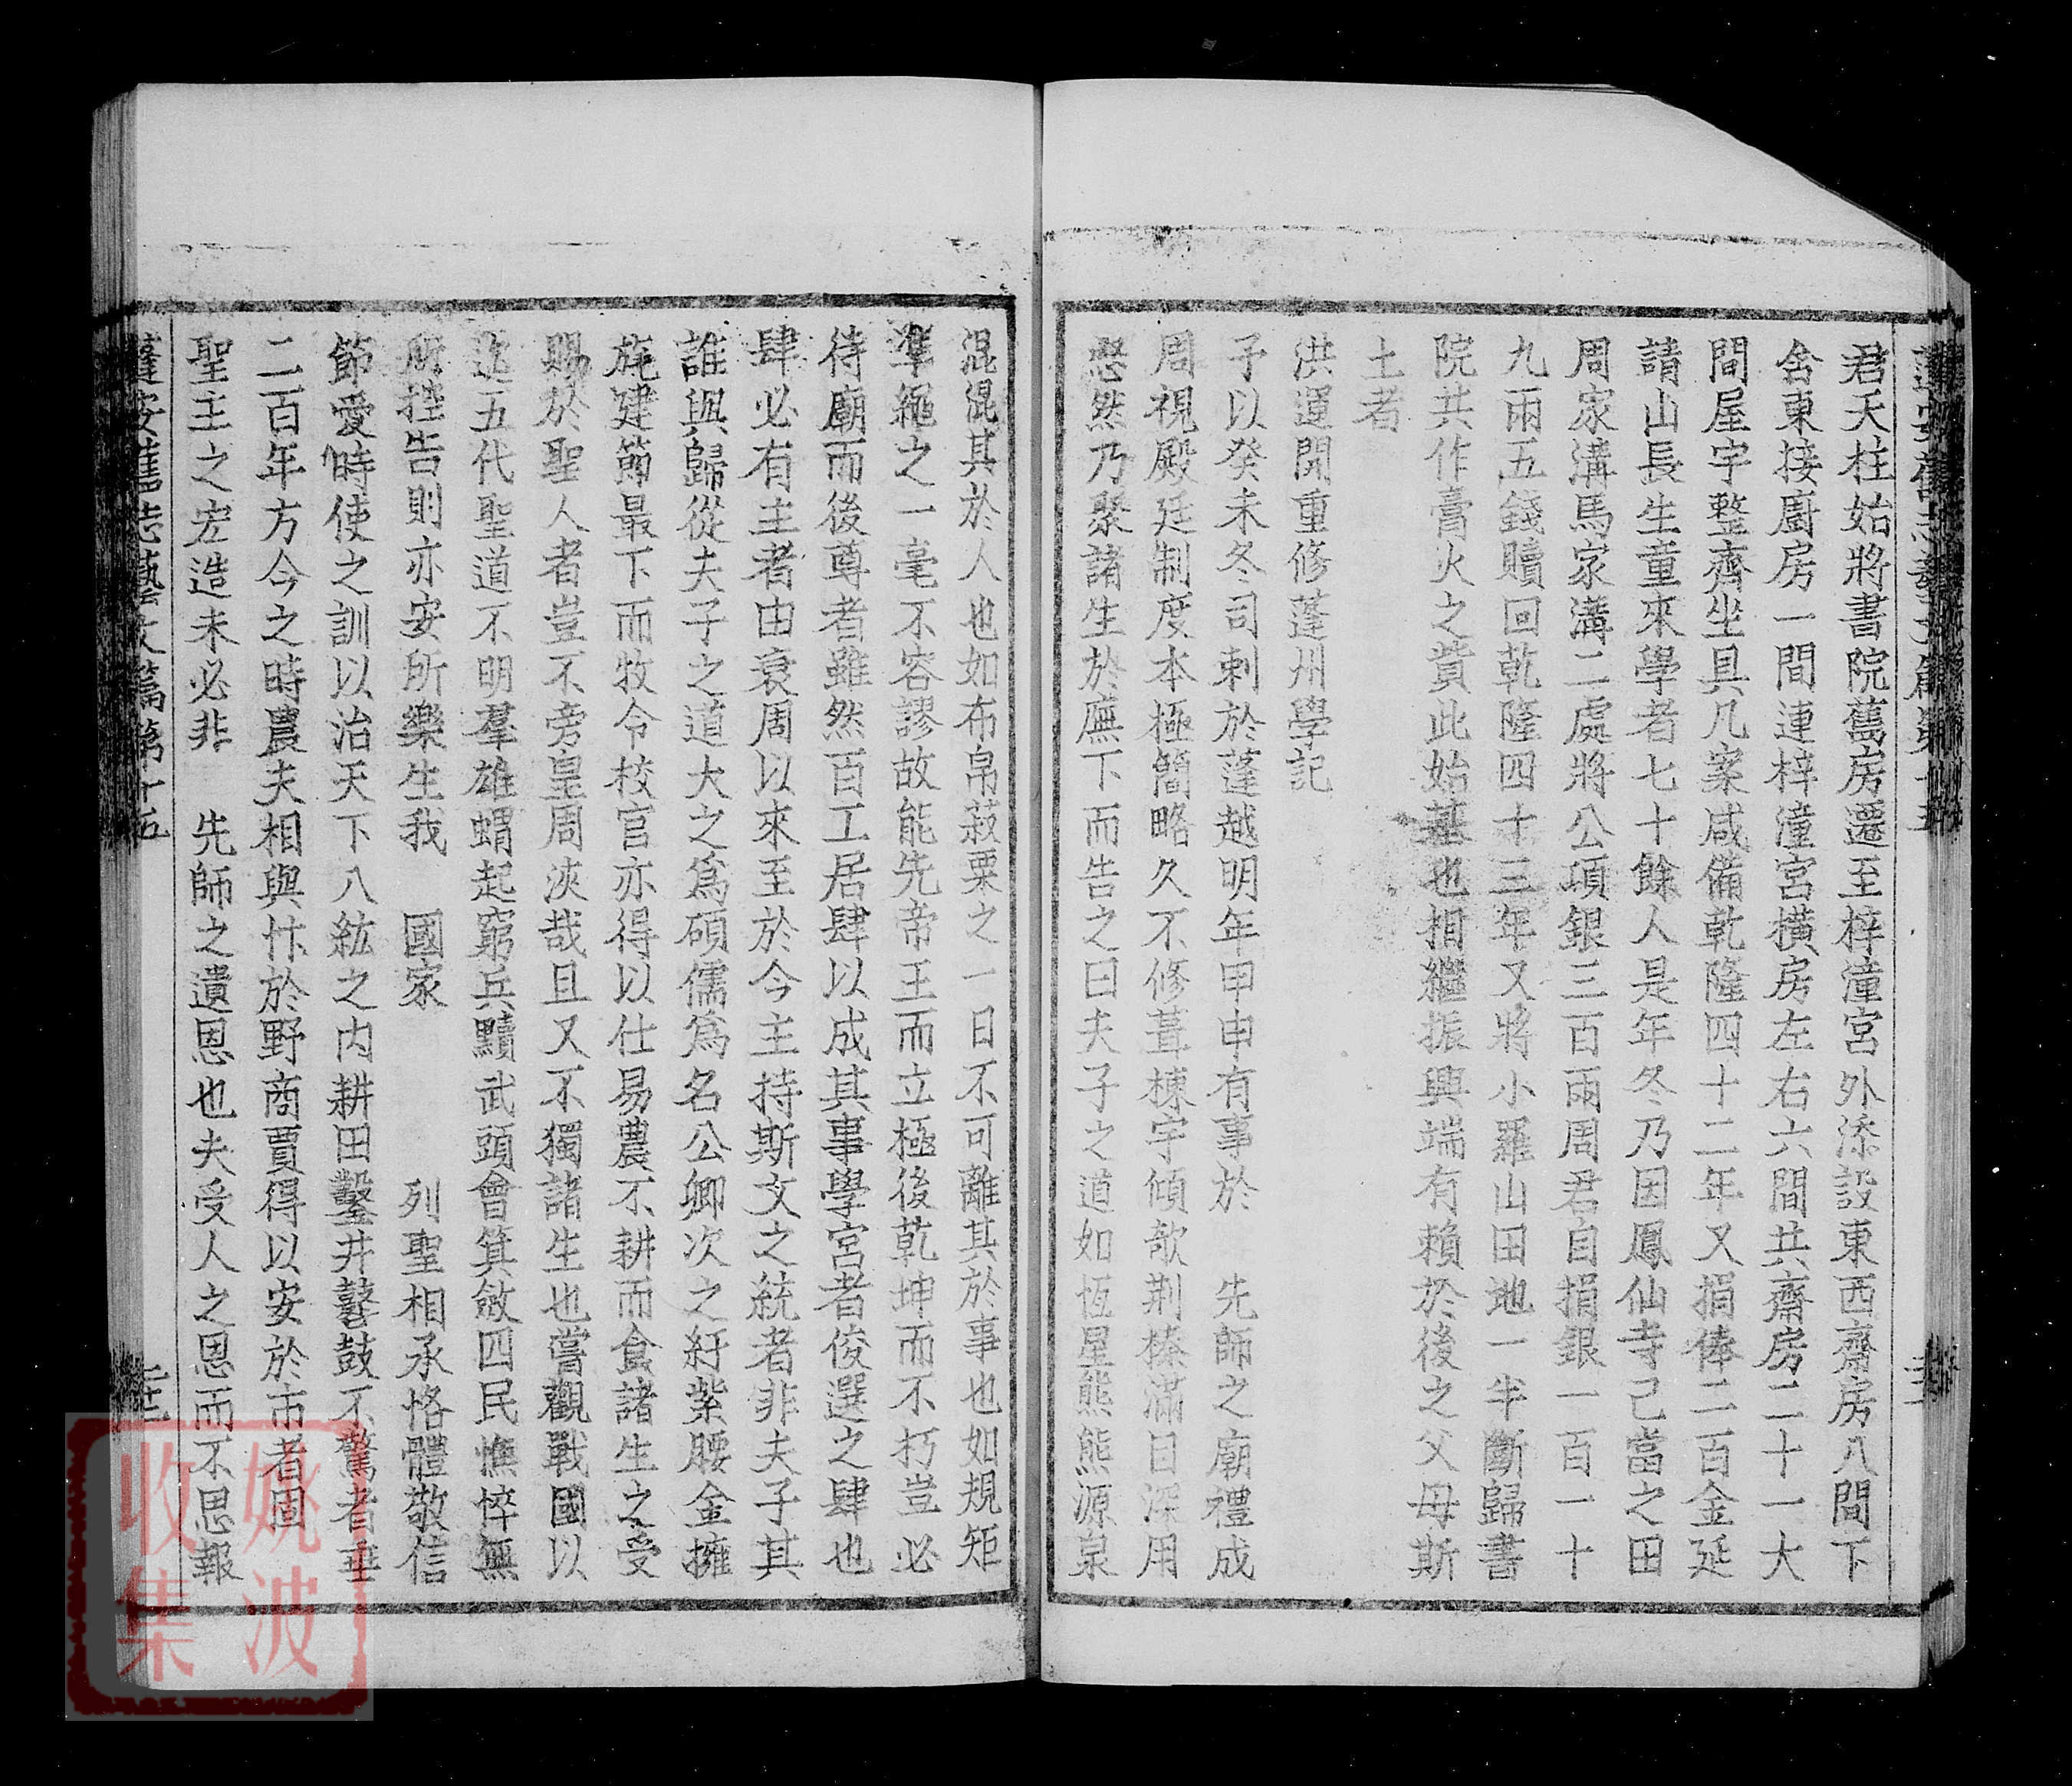 君天柱始將書院舊房遷至梓潼宮外添設東西齋房八間下
舍東接廚房一間連梓潼宮橫房左右六間共齋房二十一大
間屋宇整齊坐具几案咸備乾隆四十二年又捐俸二百金延
請山長生童來學者七十餘人是年冬乃因鳳仙寺己當之田
周家溝馬家溝二處將公項銀三百兩周君自捐銀一百一十
九兩五錢贖回乾隆四十三年又將小羅山田地一半斷歸書
院共作膏火之貲此始基也相繼振興端有賴於後之父母斯
土者
洪運開重修蓬州學記
予以癸未冬司剌於蓬越明年甲申有事於 先師之廟禮成
周視殿廷制度本極簡略久不修葺棟宇傾欹荆榛滿目深用
惄然乃聚諸生於廡下而告之曰夫子之道如恆星熊熊源泉
混混其於人也如布帛菽粟之一日不可離其於事也如規矩
準繩之一毫不容謬故能先帝王而立極後乾坤而不朽豈必
待廟而後尊者雖然百工居肆以成其事學宮者俊選之肆也
肆必有主者由衰周以來至於今主持斯文之統者非夫子其
誰與歸從夫子之道大之爲碩儒爲名公卿次之紆紫腰金擁
旄建節最下而牧令校官亦得以仕易農不耕而食諸生之受
賜於聖人者豈不旁皇周浹哉且又不獨諸生也嘗觀戰國以
迄五代聖道不明羣雄蝟起窮兵黷武頭會箕斂四民憔悴無
所控告則亦安所樂生我 國家 列聖相承恪體敬信
節愛時使之訓以治天下八紘之内耕田鑿井鼛鼓不驚者垂
二百年方今之時農夫相與忭於野商賈得以安於市者固
聖主之宏造未必非 先師之遺恩也夫受人之恩而不思報
蓬安舊志藝文篇第十五
二十二
姚波
收集